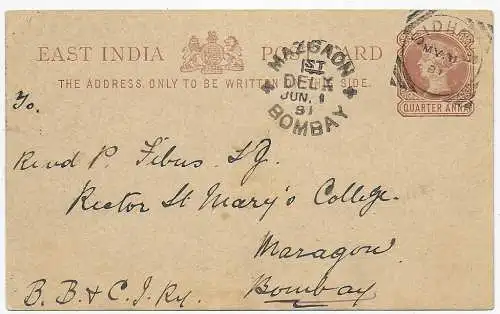 EAST INDIA POST CARD
THE ADDRESS ONLY TO BE WRITTEN THIS SIDE.
QUARTER ANNA
MAZGAON
1ST
DEL
JUN. 1
91
BOMBAY
SIDH
MY 31
91
To,
Revd P. Fibus S.J.
Rector St Mary's College.
Mazagon
Bombay
B. B. & C. I. Ry.